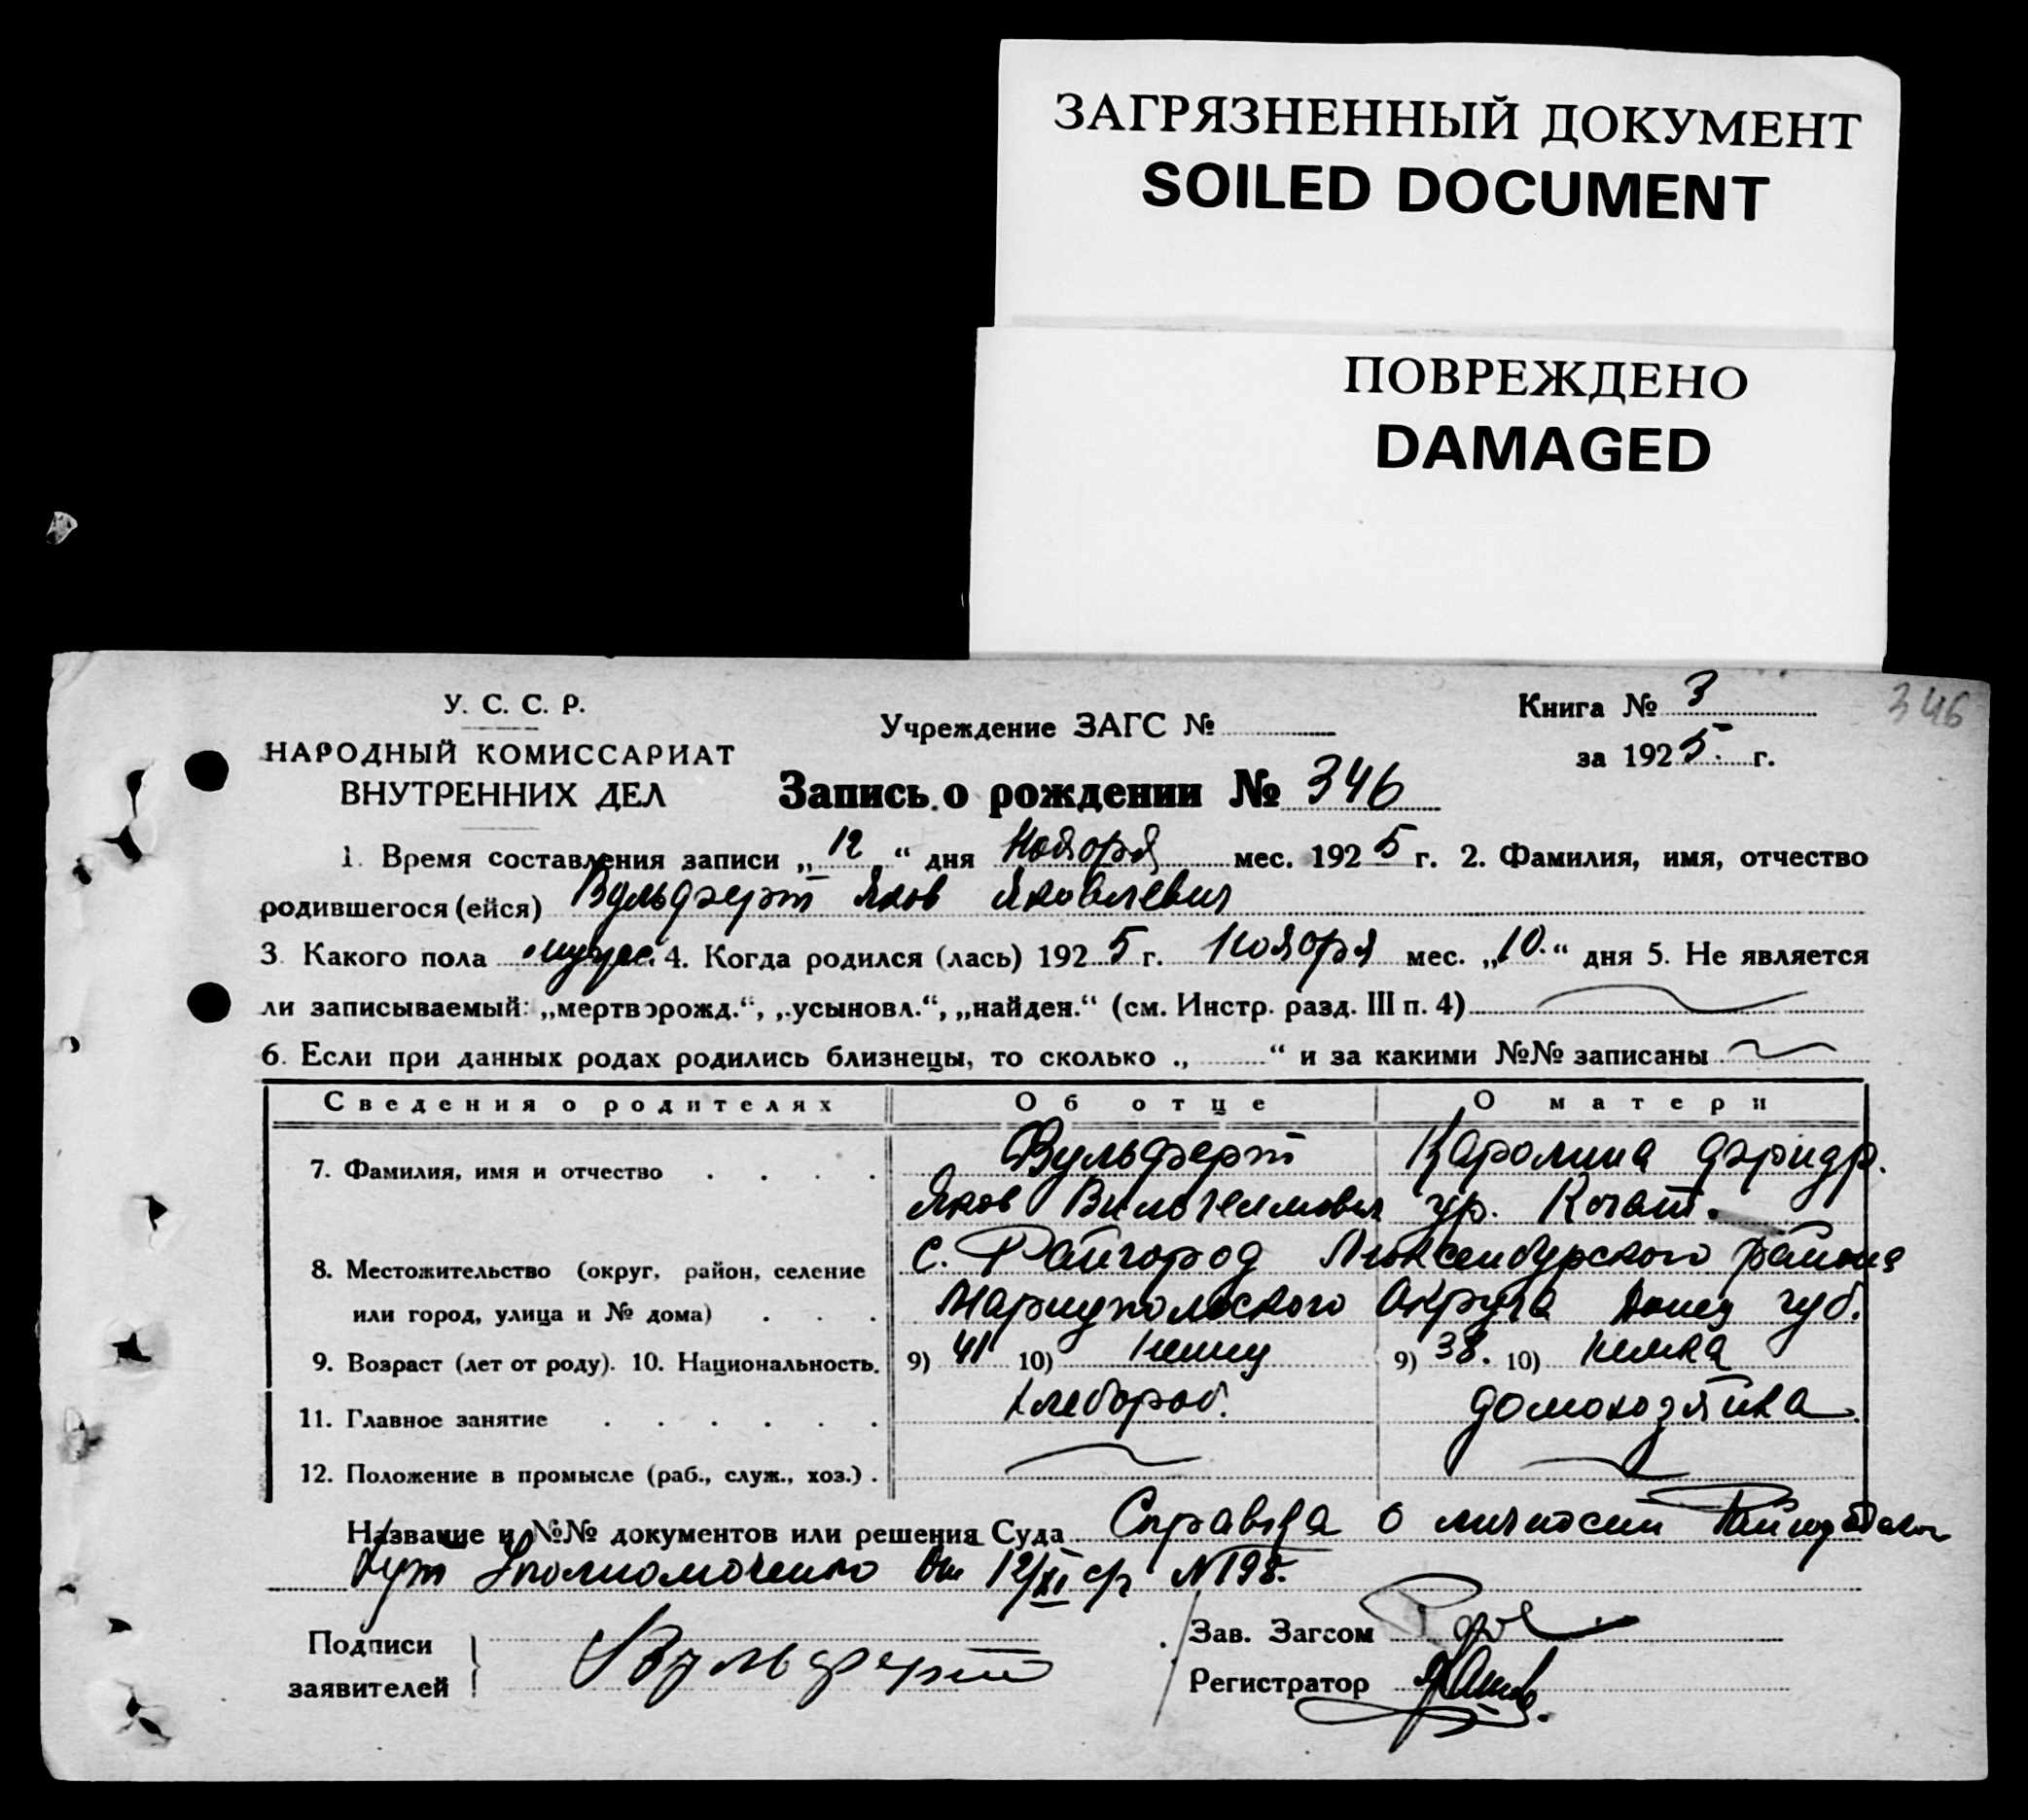 ЗАГРЯЗНЕННЫЙ ДОКУМЕНТ
SOILED DOCUMENT
ПОВРЕЖДЕНО
DAMAGED
У. С. С. Р.
НАРОДНЫЙ КОМИССАРИАТ
ВНУТРЕННИХ ДЕЛ
Учреждение ЗАГС №
Книга № 3
346
за 1925 г.
Запись о рождении № 346
1. Время составления записи „12“ дня Ноября мес. 1925 г. 2. Фамилия, имя, отчество
родившегося (ейся) Вульферт Яков Яковлевич
3. Какого пола мужс. 4. Когда родился (лась) 1925 г. Ноября мес. „10.“ дня 5. Не является
ли записываемый: „мертворожд.“, „усыновл.“, „найден.“ (см. Инстр. разд. III п. 4)
6. Если при данных родах родились близнецы, то сколько „ “ и за какими №№ записаны
Сведения о родителях Об отце О матери
7. Фамилия, имя и отчество Вульферт Каролина Фридр.
Яков Вильгельмович ур.
8. Местожительство (округ, район, селение с. Райгород Люксенбурского района
или город, улица и № дома) Мариупольского Округа Донец губ.
9. Возраст (лет от роду). 10. Национальность. 9) 41 10) немец 9) 38. 10) немка
11. Главное занятие хлебороб. домохозяйка
12. Положение в промысле (раб., служ., хоз.)
Название и №№ документов или решения Суда Справка о личности
Уполномоченого от 12/XI с/г №198.
Подписи
заявителей Вульферт
Зав. Загсом
Регистратор